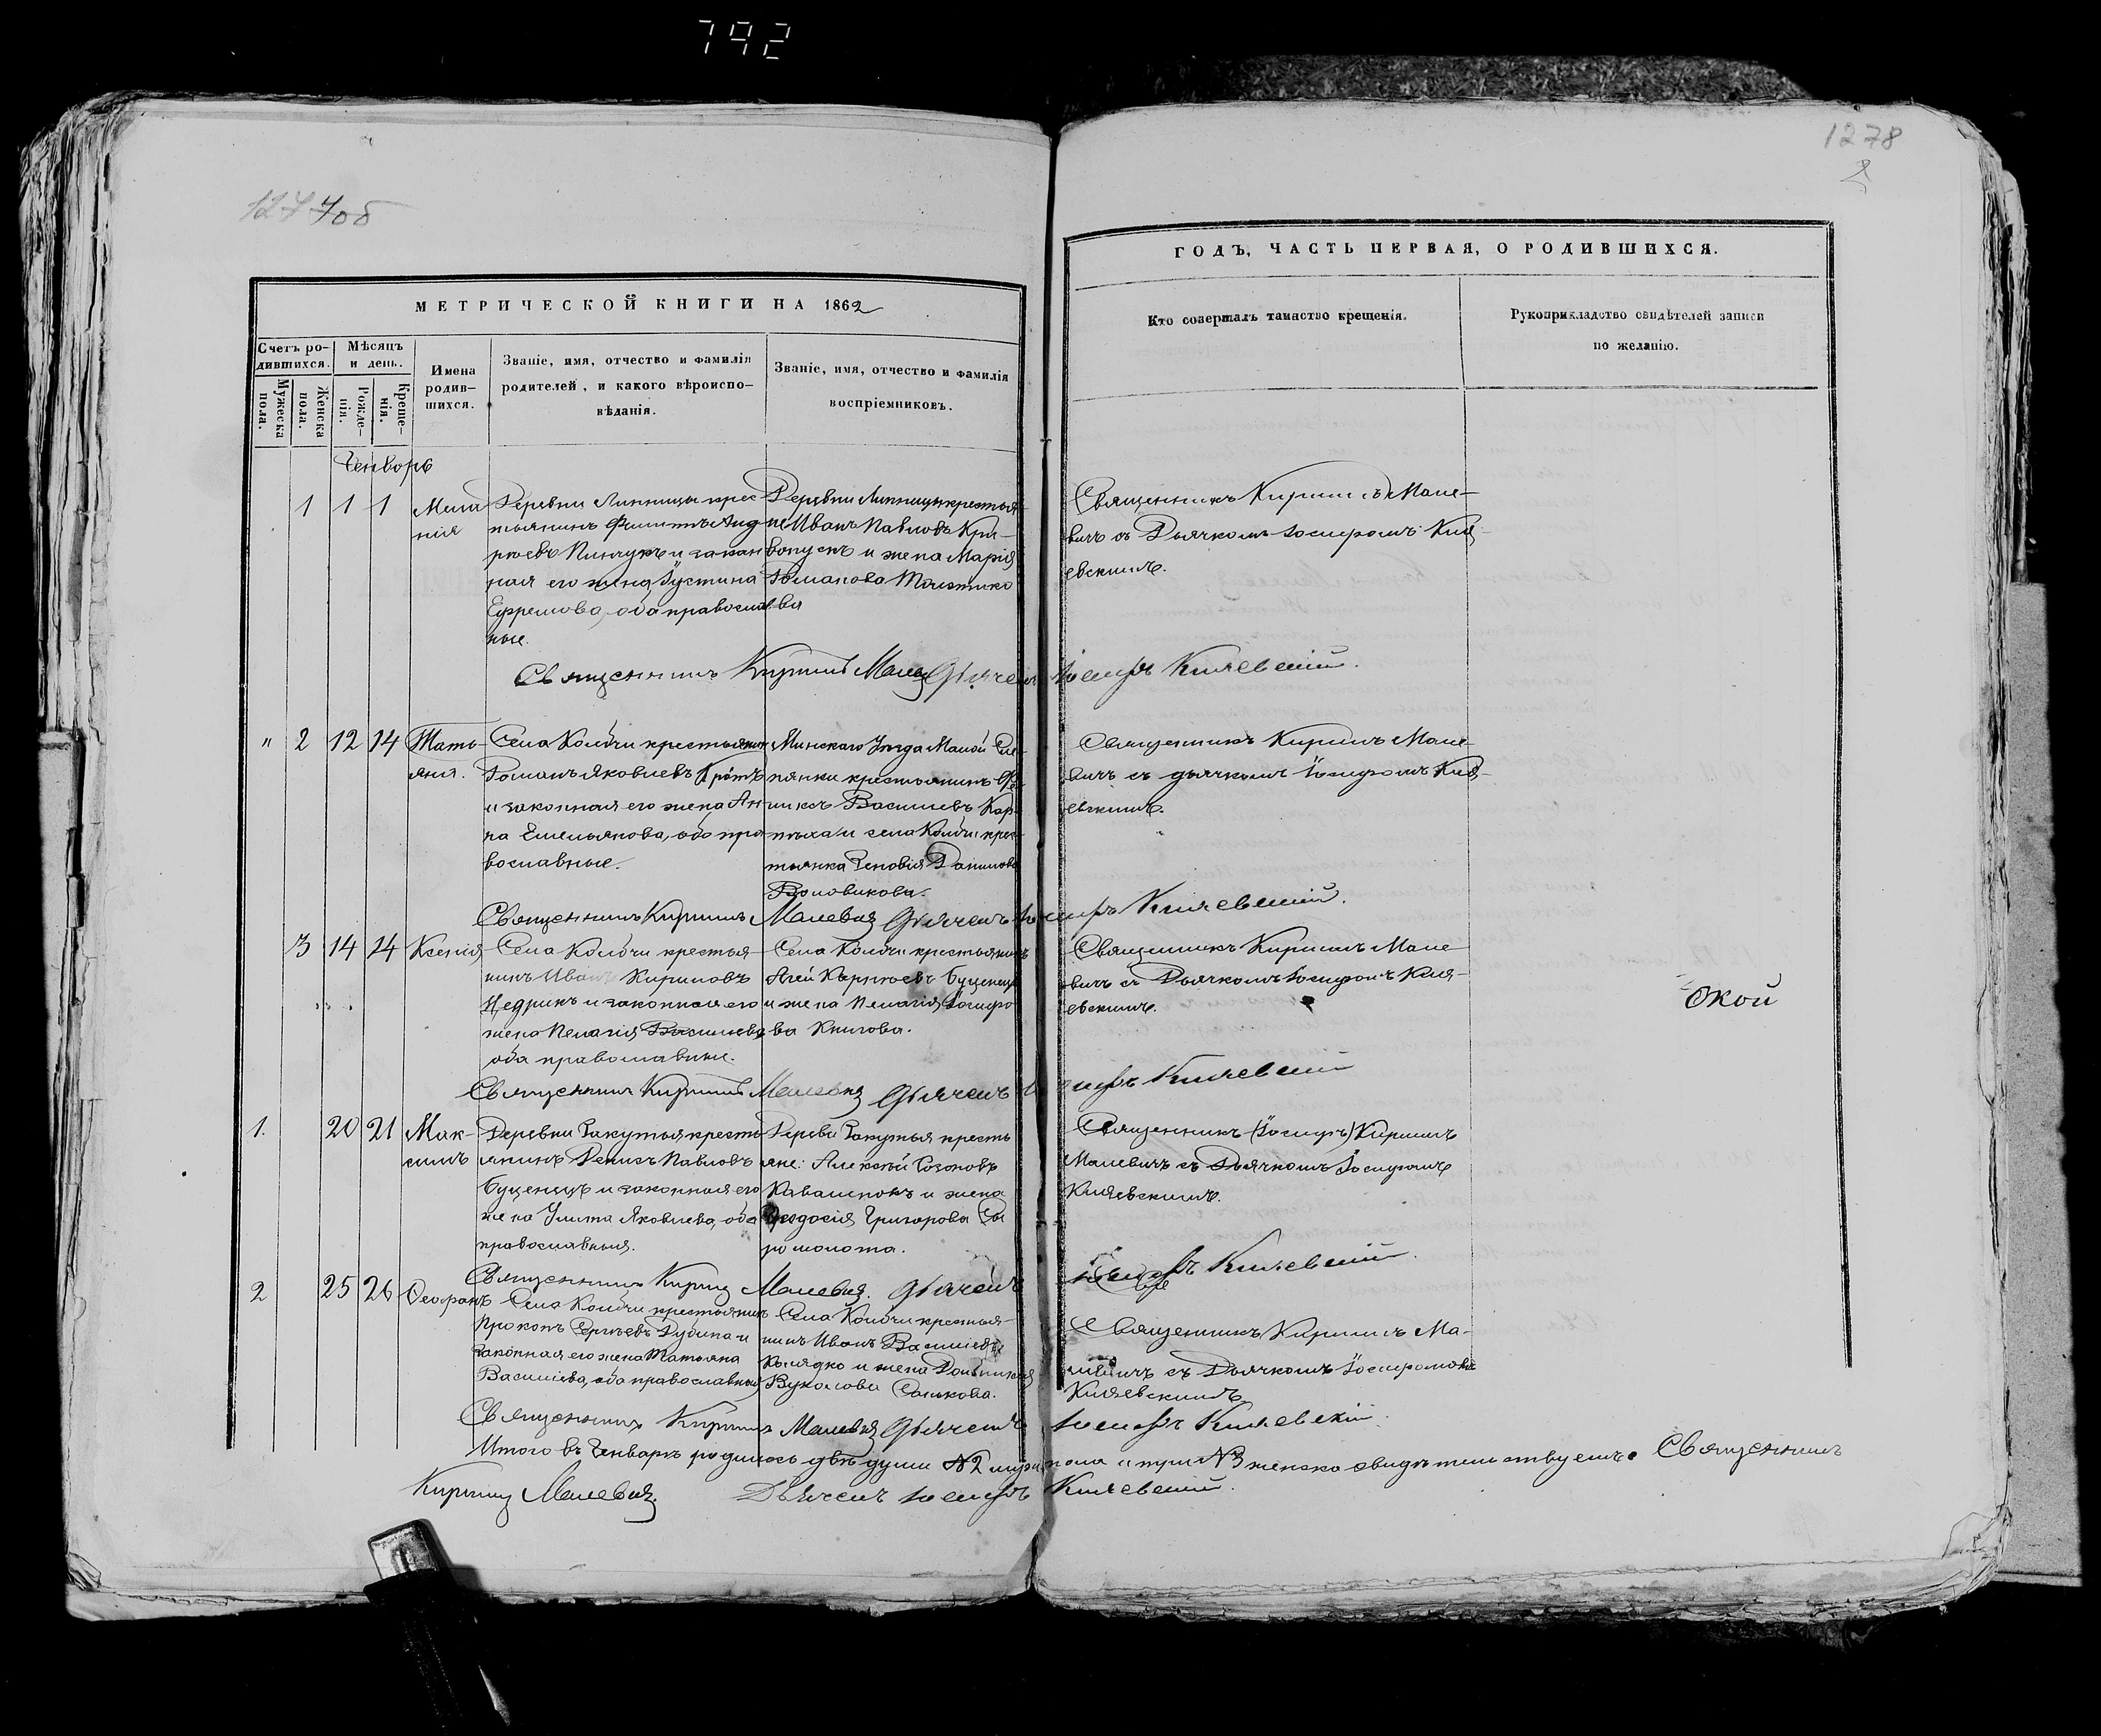 792
1277об
1278
2
МЕТРИЧЕСКОЙ КНИГИ НА 1862
ГОДЪ, ЧАСТЬ ПЕРВАЯ, О РОДИВШИХСЯ.
Счетъ ро-
дившихся.
Мужеска пола.
Женска пола.
Мѣсяцъ
и день.
Рожде-
нія.
Креще-
нія.
Имена
родив-
шихся.
Званіе, имя, отчество и фамилія
родителей, и какого вѣроиспо-
вѣданія.
Званіе, имя, отчество и фамилія
воспріемниковъ.
Кто совершалъ таинство крещенія.
Рукоприкладство свидѣтелей записи
по желанію.
Генворь
1 1 1
Мела
нія
Деревни Липницы крес
тьянинъ Филиппъ Анд
реевъ Пинчукъ и закон
ная его жена Іустина
Ефремова, оба православ
ные.
Деревни Липницы крестья
не Иванъ Павловъ Кри-
вопускъ и жена Марія
Романова
Священникъ Кириллъ Мале-
вичъ съ Дьячкомъ Іосифомъ Кня-
евскимъ.
Священникъ Кириллъ Малевич Дьячекъ Іосифъ Княевскій.
" 2 12 14
Тать-
яна.
Села Колбчи крестьянин
Романъ Яковлевъ Кротъ
и законная его жена Ан
на Емельянова, оба пра
вославные.
Минскаго Уезда Малой Сле-
пянки крестьянинъ
Василіевъ Кар-
и села Колбчи крес-
тьянка Зеновія Данилова
Воловикова.
Священникъ Кириллъ Мале-
вичъ съ дьячкомъ Іосифомъ Кня-
евскимъ.
Священникъ Кириллъ Малевич Дьячекъ Іосифъ Княевскій.
3 14 14
Ксенія
Села Колбчи крестья-
нинъ Иванъ Кириловъ
Цедрикъ и законная его
жена Пелагія Василиева
оба православные.
Села Колбчи крестьянинъ
Агей Карнѣевъ Буценецъ
и жена Пелагія Іосифо
ва Книгова.
Священникъ Кириллъ Мале
вичъ съ Дьячкомъ Іосифомъ Кня-
евскимъ.
ской
Священникъ Кириллъ Малевич Дьячекъ Іосифъ Княевскій
1. 20 21
Мак-
симъ
Деревни Закутья кресть
янинъ Денисъ Павловъ
Буценецъ и законная его
жена Улита Яковлева, оба
православныя.
Деревни Закутья кресть
яне: Алексѣй Созоновъ
Кавалионъ и жена
Феодосія Григорова Сы
ромолота.
Священникъ (Іосифъ) Кириллъ
Малевичъ съ Дьячкомъ Іосифомъ
Княевскимъ.
Священникъ Кирилл Малевич. Дьячекъ Іосифъ Княевскій.
2 25 26
Феофанъ
Села Колбчи крестьянинъ
Прокопъ Сергѣевъ Дубина и
законная его жена Татьяна
Василіева, оба православныя
Села Колбчи крестья-
нинъ Иванъ Василіевъ
Колядко и жена Домникія
Вуколова Санькова.
Священникъ Кириллъ Ма-
левичъ съ Дьячкомъ Іосифомъ
Княевскимъ
Священникъ Кириллъ Малевич Дьячекъ Іосифъ Княевскій.
Итого въ Генварѣ родилось двѣ души №2 муж. пола и три №3 женска свидѣтельствуемъ. Священникъ
Кирилл Малевич. Дьячекъ Іосифъ Княевскій.